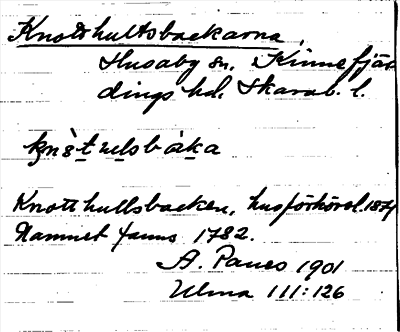 Knottshultsbackarna,
Husaby sn. Kinnefjär-
dings hd. Skarab. l.
Knotthultsbacken, husförhörsl. 1874
Namnet fanns 1782.
A. Paues 1901
Ulma 111:126